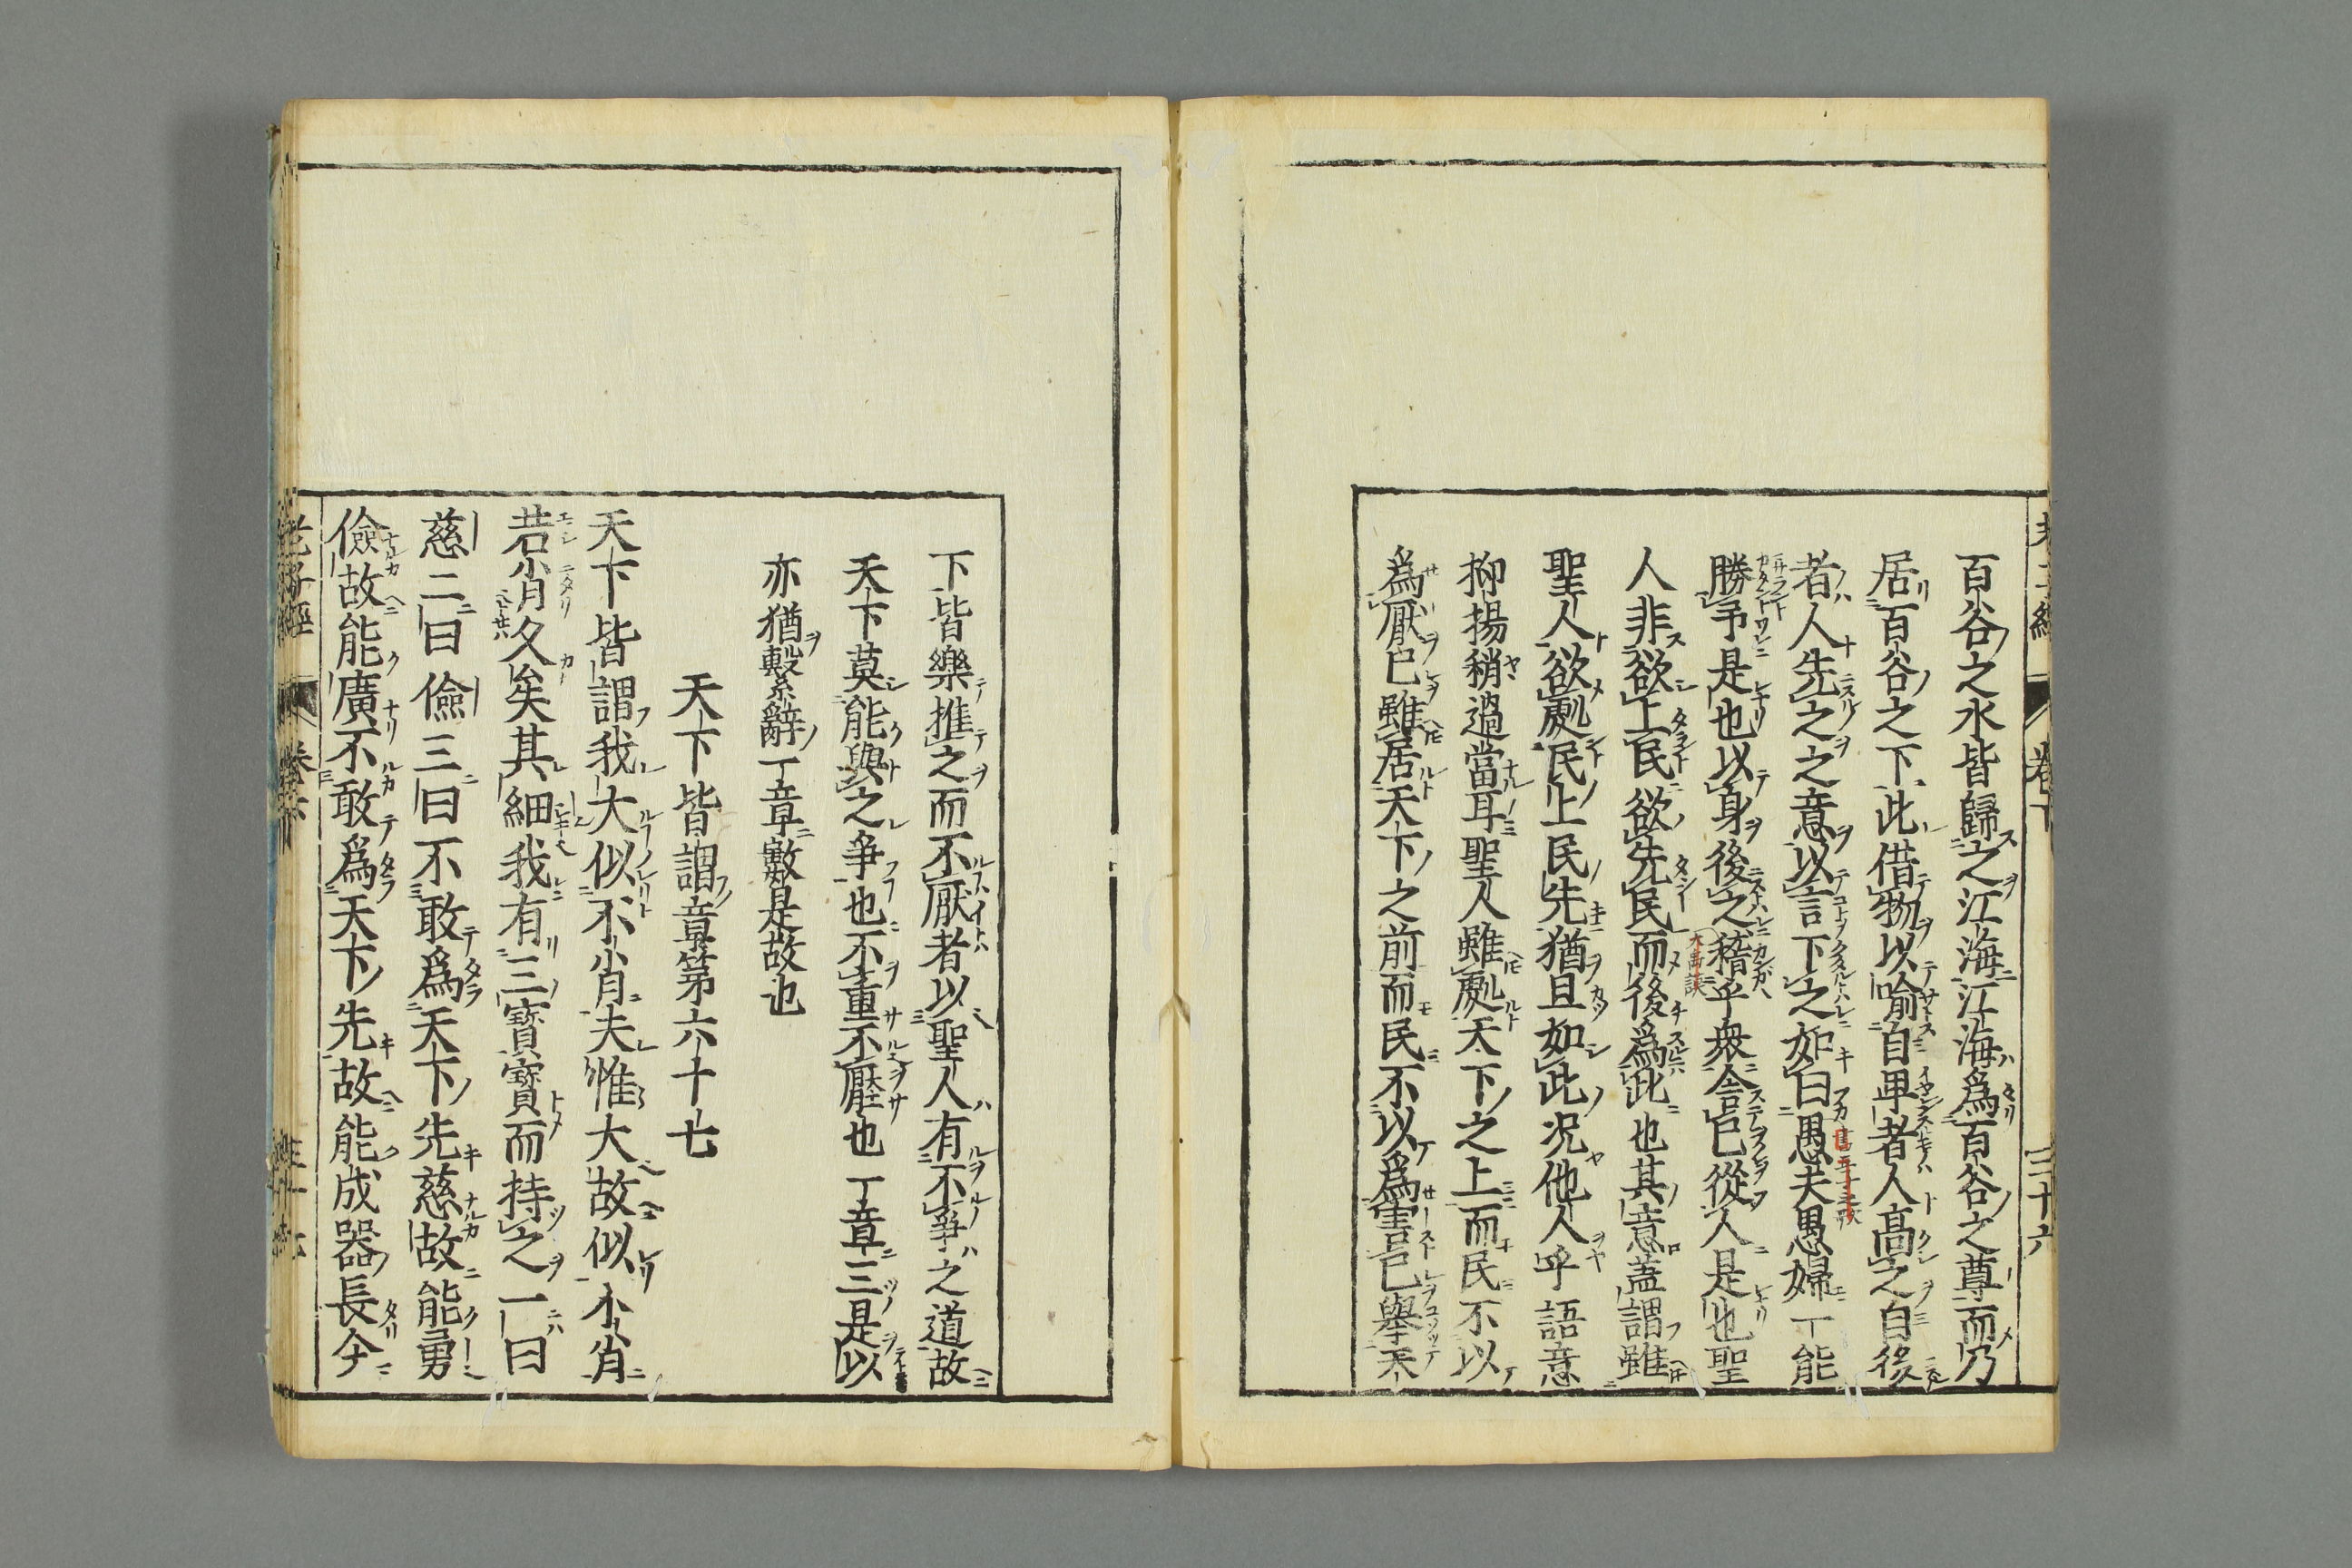 百谷之水皆歸之江海江海爲百谷之尊而乃
居百谷之下此借物以喻自卑者人高之自後
者人先之之意以言下之如曰愚夫愚婦一能
勝予是也以身後之稽乎衆舎已從人是也聖
人非欲上民欲先民而後爲此也其意蓋謂雖
聖人欲處民上民先猶且如此況他人乎語意
抑揚稍過當耳聖人雖處天下之上而民不以
爲厭已雖居天下之前而民不以爲害已舉天
下皆樂推之而不厭者以聖人有不爭之道故
天下莫能與之爭也不重不壓也一章三是以
亦猶繫辭一章數是故也
天下皆謂章第六十七
天下皆謂我大似不肖夫惟大故似不肖
若肖久矣其細我有三寶寶而持之一曰
慈二曰儉三曰不敢爲天下先慈故能勇
儉故能廣不敢爲天下先故能成器長今